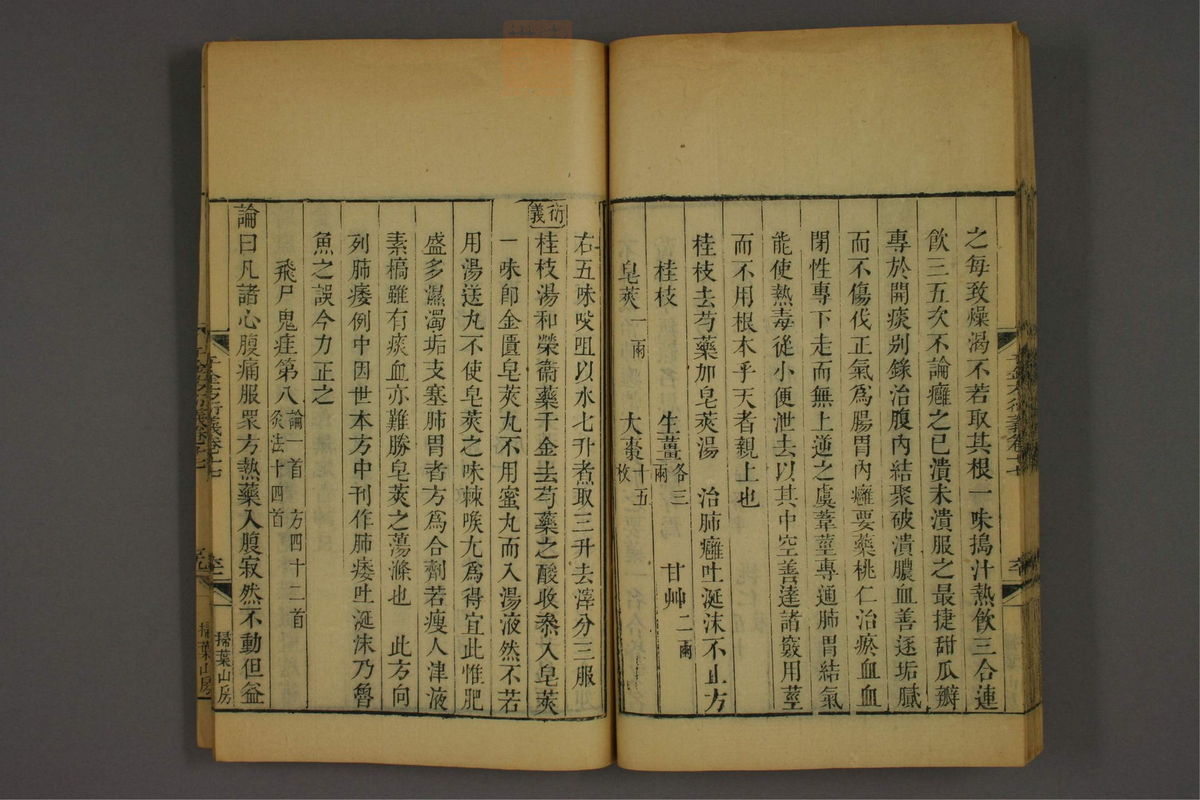 之每致燥渴不若取其根一味搗汁熱飲三合連
飲三五次不論癰之已潰未潰服之最捷甜瓜瓣
專於開痰别錄治腹內結聚破潰膿血善逐垢膩
而不傷伐正氣爲腸胃內癰要藥桃仁治瘀血血
閉性專下走而無上逆之虞葦莖專通肺胃結氣
能使熱毒從小便泄去以其中空善達諸竅用莖
而不用根本乎天者親上也
桂枝去芍藥加皂莢湯　治肺癰吐涎沫不止方
桂枝　生薑各三兩　甘艸二兩
皂莢一兩　大棗十五枚
右五味㕮咀以水七升煮取三升去滓分三服
衍義
桂枝湯和榮衞藥千金去芍藥之酸收叅入皂莢
一味卽金匱皂莢丸不用蜜丸而入湯液然不若
用湯送丸不使皂莢之味棘喉尢爲得宜此惟肥
盛多濕濁垢支塞肺胃者方爲合劑若瘦人津液
素槁雖有痰血亦難勝皂莢之蕩滌也　此方向
列肺痿例中因世本方中刊作肺痿吐涎沫乃魯
魚之誤今力正之
飛尸鬼疰第八論一首　方四十二首
灸法十四首
論曰凡諸心腹痛服眾方熱藥入腹寂然不動但益
千金方衍義卷十七
掃葉山房